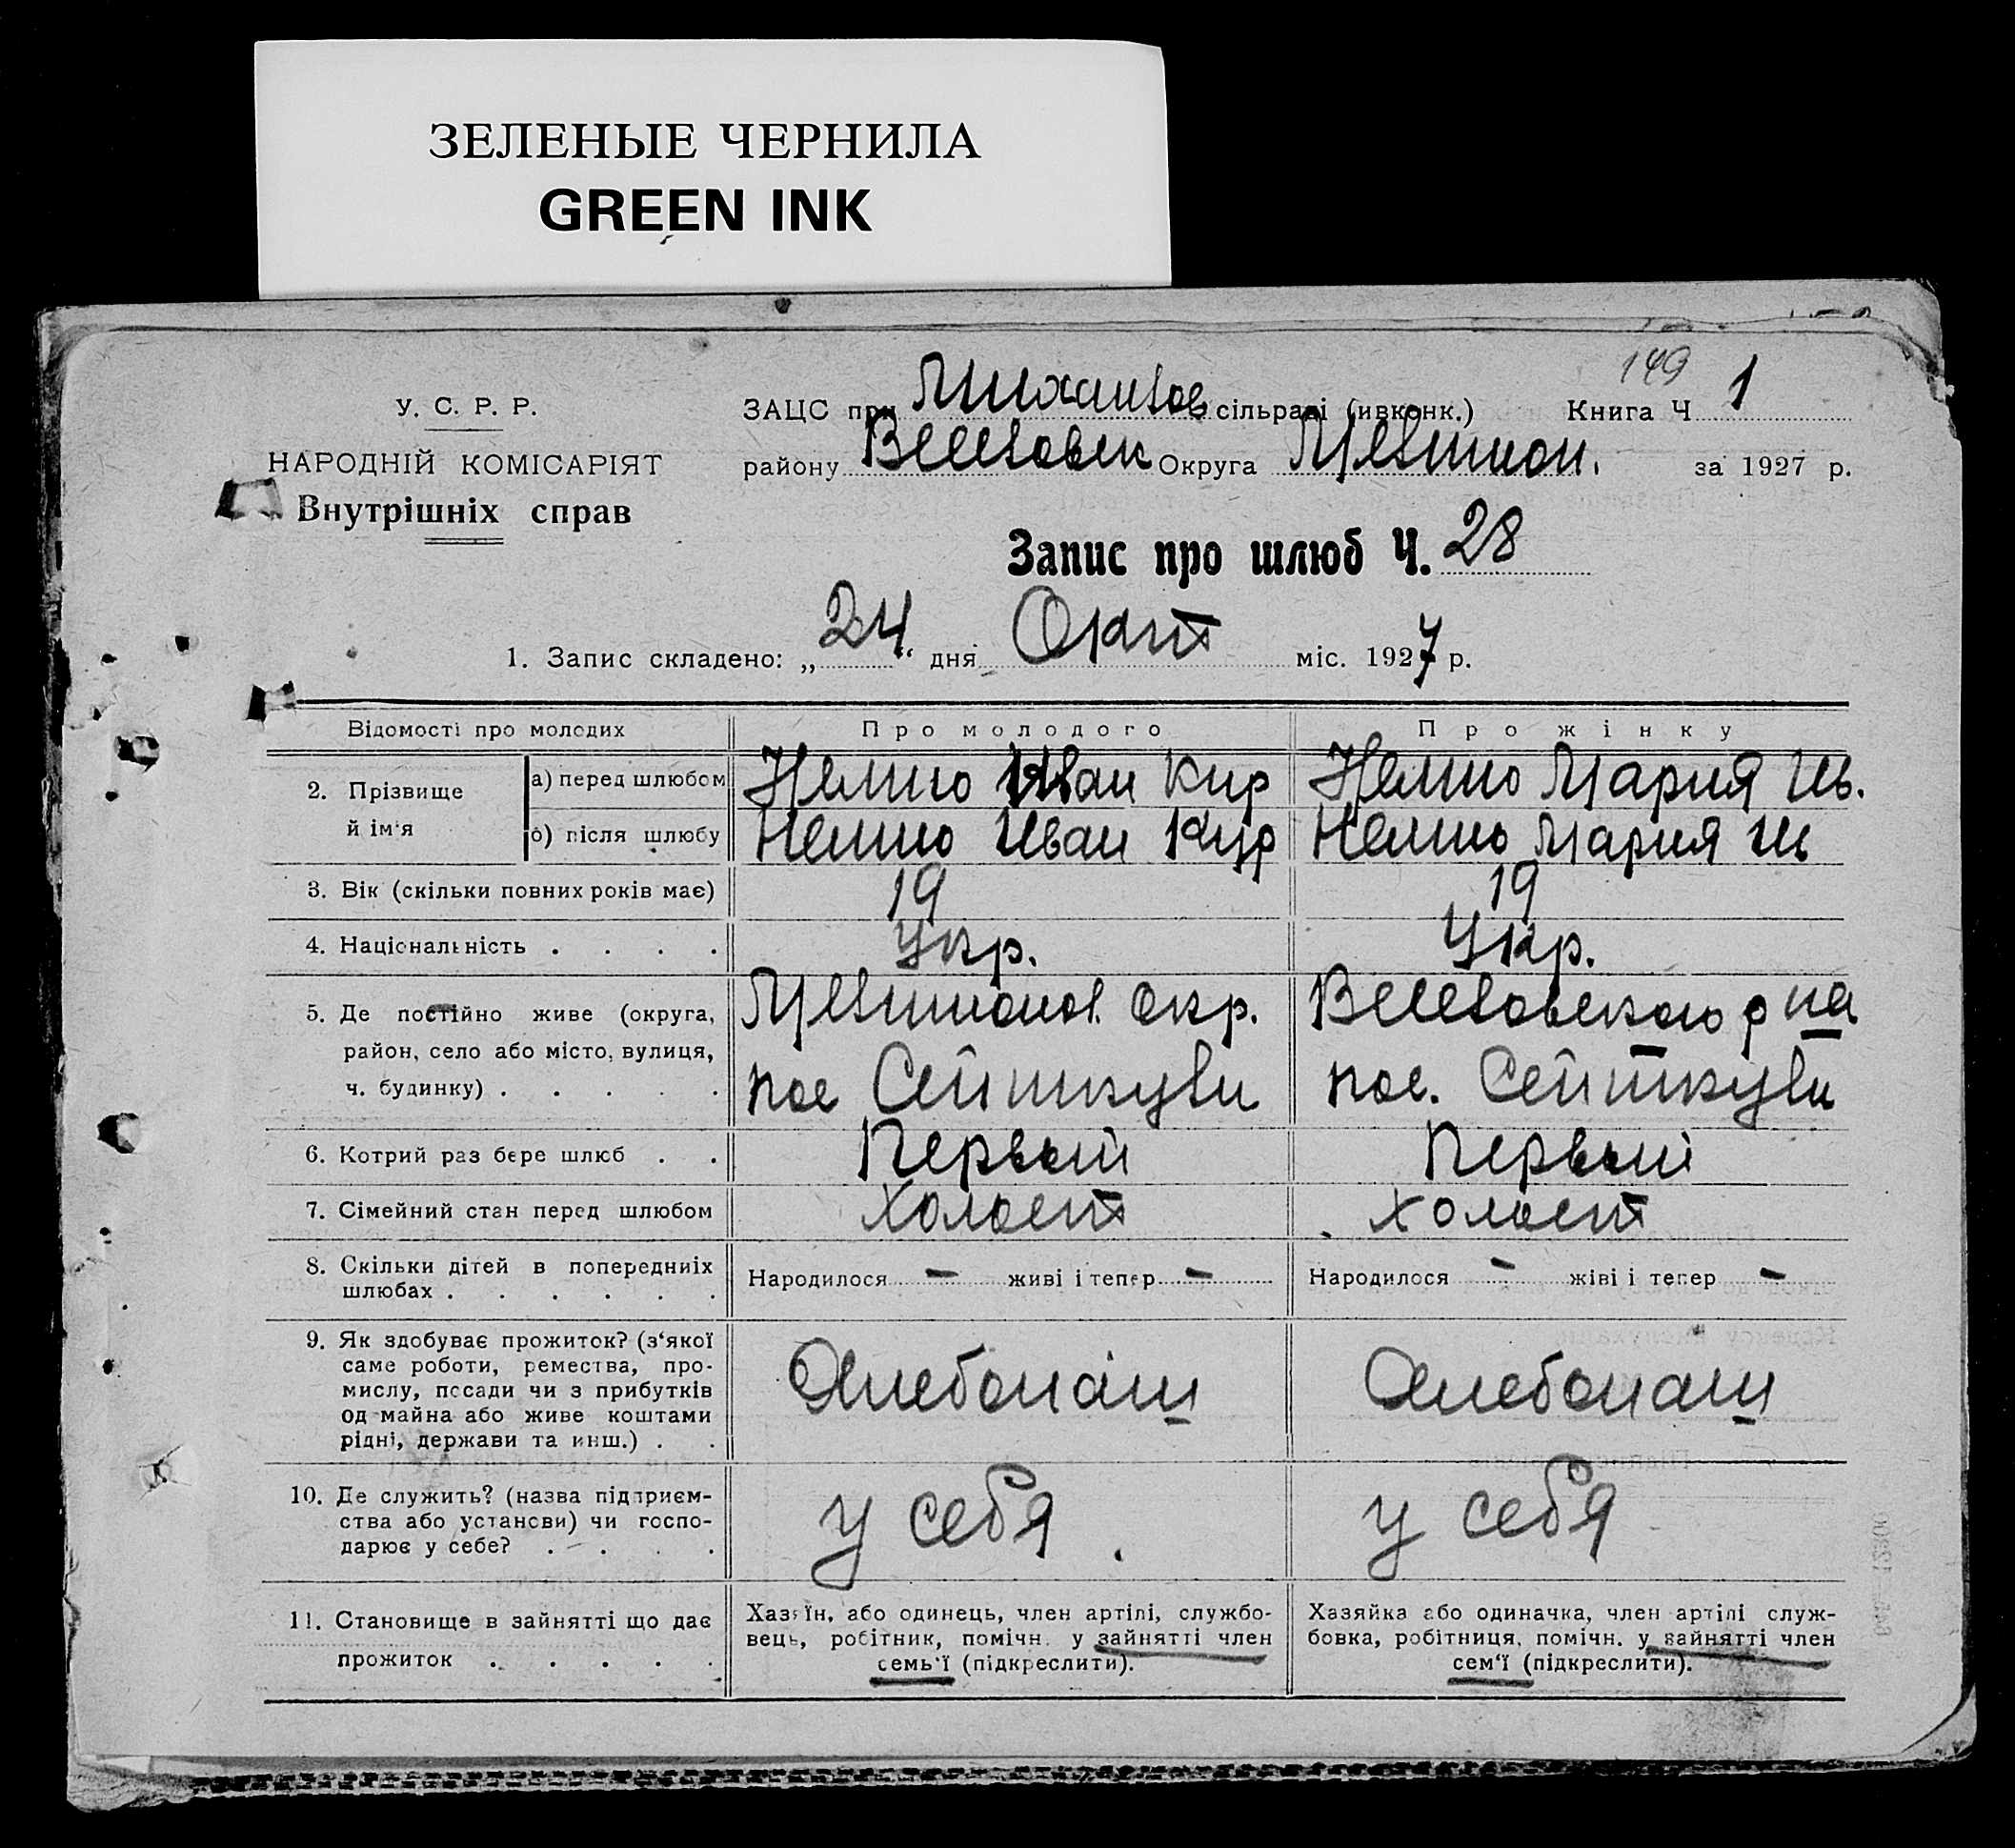 ЗЕЛЕНЫЕ ЧЕРНИЛА
GREEN INK
149
У. С. Р. Р.
НАРОДНІЙ КОМІСАРІЯТ
Внутрішніх справ
ЗАЦС при Михайлов сільраді (ивконк.) Книга Ч 1
району Веселовск Округа Мелитоп. за 1927 р.
Запис про шлюб Ч. 28
1. Запис складено: „24“ дня Окт міс. 1927 р.
Відомості про молодих
Про молодого
Про жінку
2. Прізвище й ім'я
а) перед шлюбом
Иван Кир
Мария Ив.
б) після шлюбу
Иван Кир
Мария Ив
3. Вік (скільки повних років має)
19
19
4. Національність . . . .
Укр.
Укр.
5. Де постійно живе (округа,
район, село або місто, вулиця,
ч. будинку) . . . . .
Мелитопол. окр.
пос
Веселовского р на
пос.
6. Котрий раз бере шлюб . .
Первый
Первый
7. Сімейний стан перед шлюбом
холост
холост
8. Скільки дітей в попередниіх
шлюбах . . . . . .
Народилося – живі і тепер –
Народилося – жіві і тепер –
9. Як здобуває прожиток? (з'якої
саме роботи, ремества, про-
мислу, посади чи з прибутків
од майна або живе коштами
рідні, держави та инш.) . .
Хлебопаш
Хлебопаш
10. Де служить? (назва підприєм-
ства або установи) чи госпо-
дарює у себе? . . . .
у себя
у себя
11. Становище в зайнятті що дає
прожиток . . . . .
Хазяїн, або одинець, член артілі, службо-
вець, робітник, помічн. у зайнятті член
семь'ї (підкреслити).
Хазяйка або одиначка, член артілі служ-
бовка, робітниця, помічн. у зайнятті член
сем'ї (підкреслити).